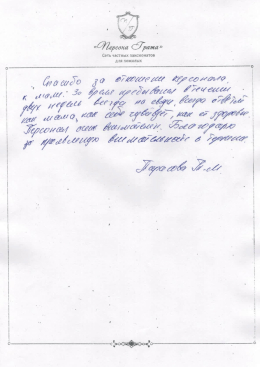 «Персона Грата»
Сеть частных пансионатов
для пожилых
Спасибо за отношение персонала
к маме. За время пребывания в течении
двух недель всегда на связи, всегда ответят
как мама, как себя чувствует, как её здоровье.
Персонал очень внимательный. Благодарю
за проявленную внимательность и терпение
Тарасова В.М.